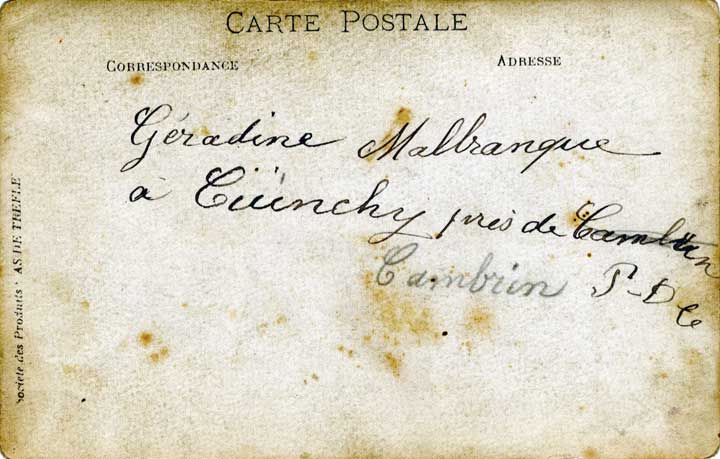 CARTE POSTALE
CORRESPONDANCE
ADRESSE
Géradine Malbranque
à Cüinchy près de Cambrin
Cambrin P-D C
Société des Produits "AS DE TREFLE"